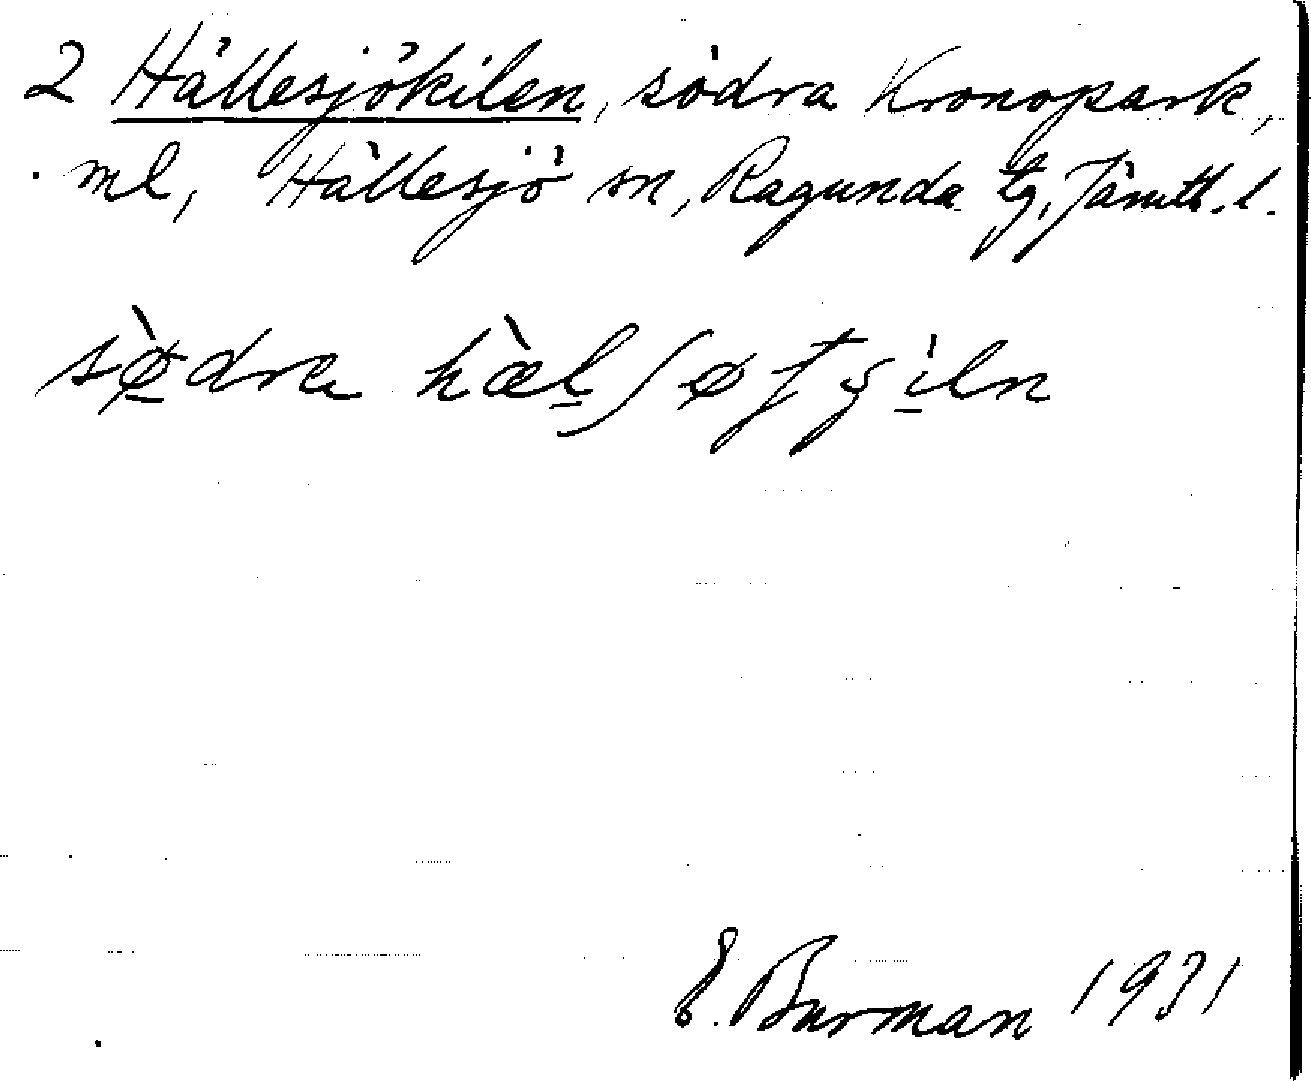 2 Hällesjökilen, södra Kronopark,
ml, Hällesjö sn, Ragunda tg, Jämtl. l.
sø̀dra hæ̀lʃøtʃìln
E. Burman 1931